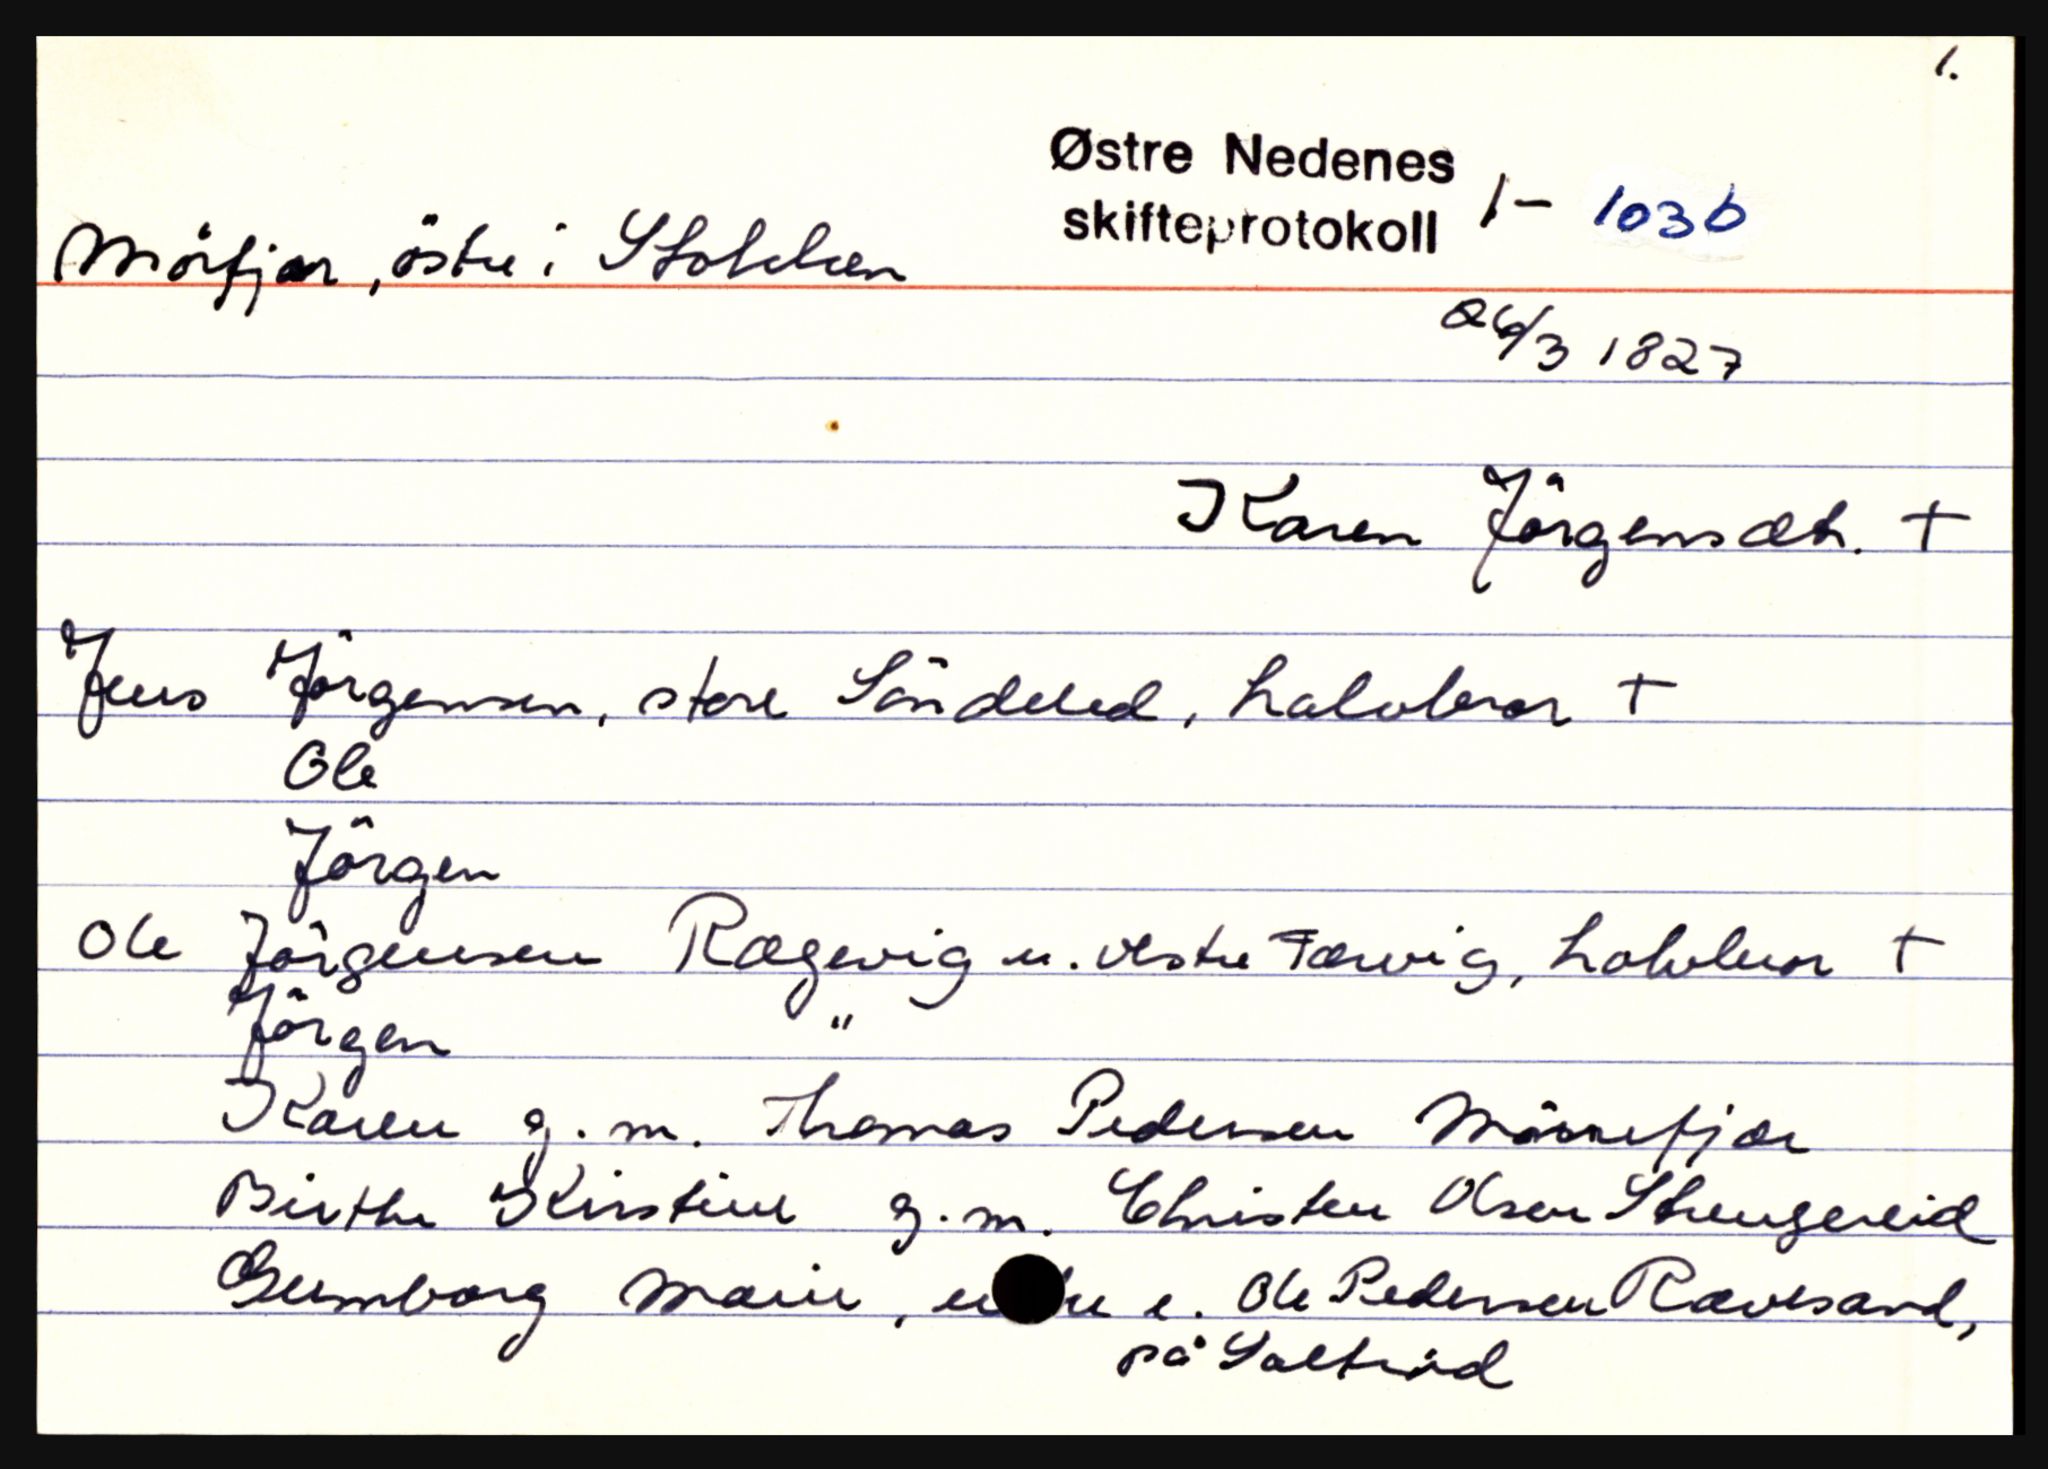 1.
Østre Nedenes
skifteprotokoll 1- 103b
Mörfjær, östre i Stokken
26/3 1827
Karen Jörgensdtr. +
Jens Jörgensen, store Söndeled, halvbror +
Ole
Jörgen
Ole Jörgensen Rægevig u. vestre Færvig, halvbror +
Jörgen "
Karen g.m. Thomas Pedersen Mörrefjær
Birthe Kirstine g.m. Christen Olsen Strengereid
Gumborg Marie, e. Ole Pedersen Rævesand,
på Saltröd